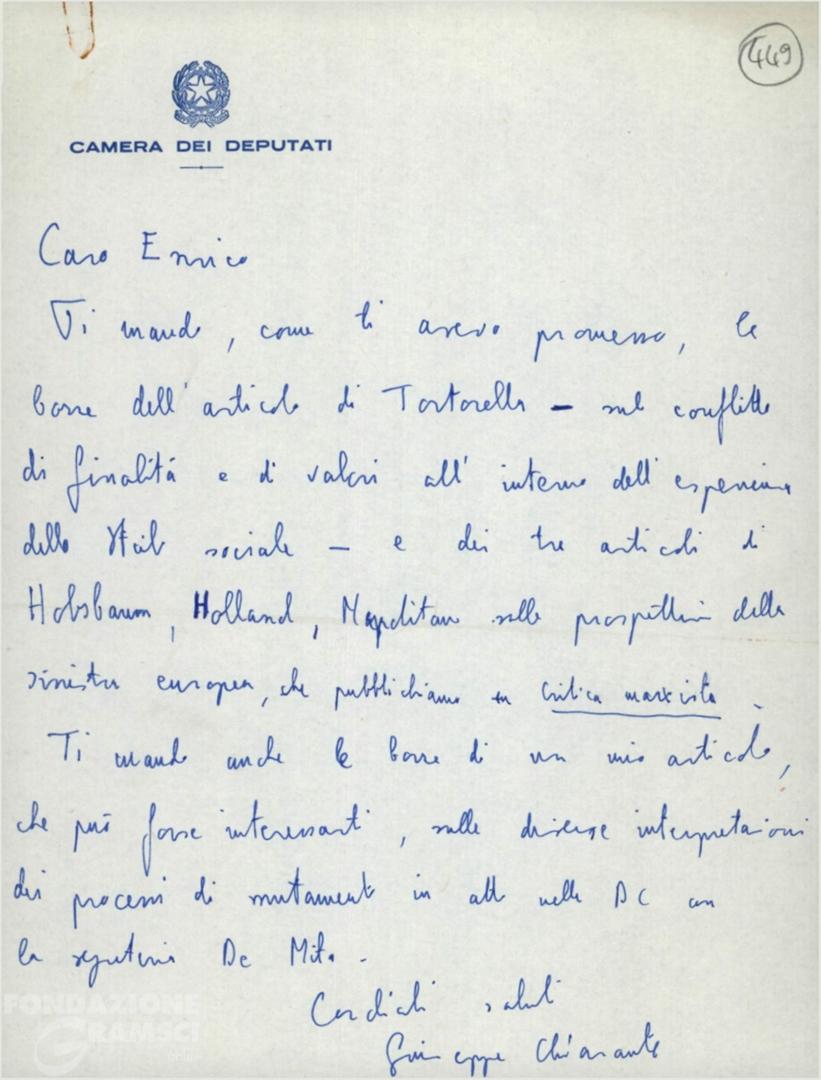 449
CAMERA DEI DEPUTATI
Caro Enrico
Ti mando, come ti avevo promesso, le
bozze dell'articolo di Tortorella – sul conflitto
di finalità e di valori all'interno dell'esperienza
dello Stato sociale – e dei tre articoli di
Hobsbawm, Holland, Napolitano sulle prospettive della
sinistra europea, che pubblichiamo su Critica marxista.
Ti mando anche le bozze di un mio articolo,
che può forse interessarti, sulle diverse interpretazioni
dei processi di mutamento in atto nella DC con
la segreteria De Mita.
Cordiali saluti
Giuseppe Chiarante
FONDAZIONE
GRAMSCI